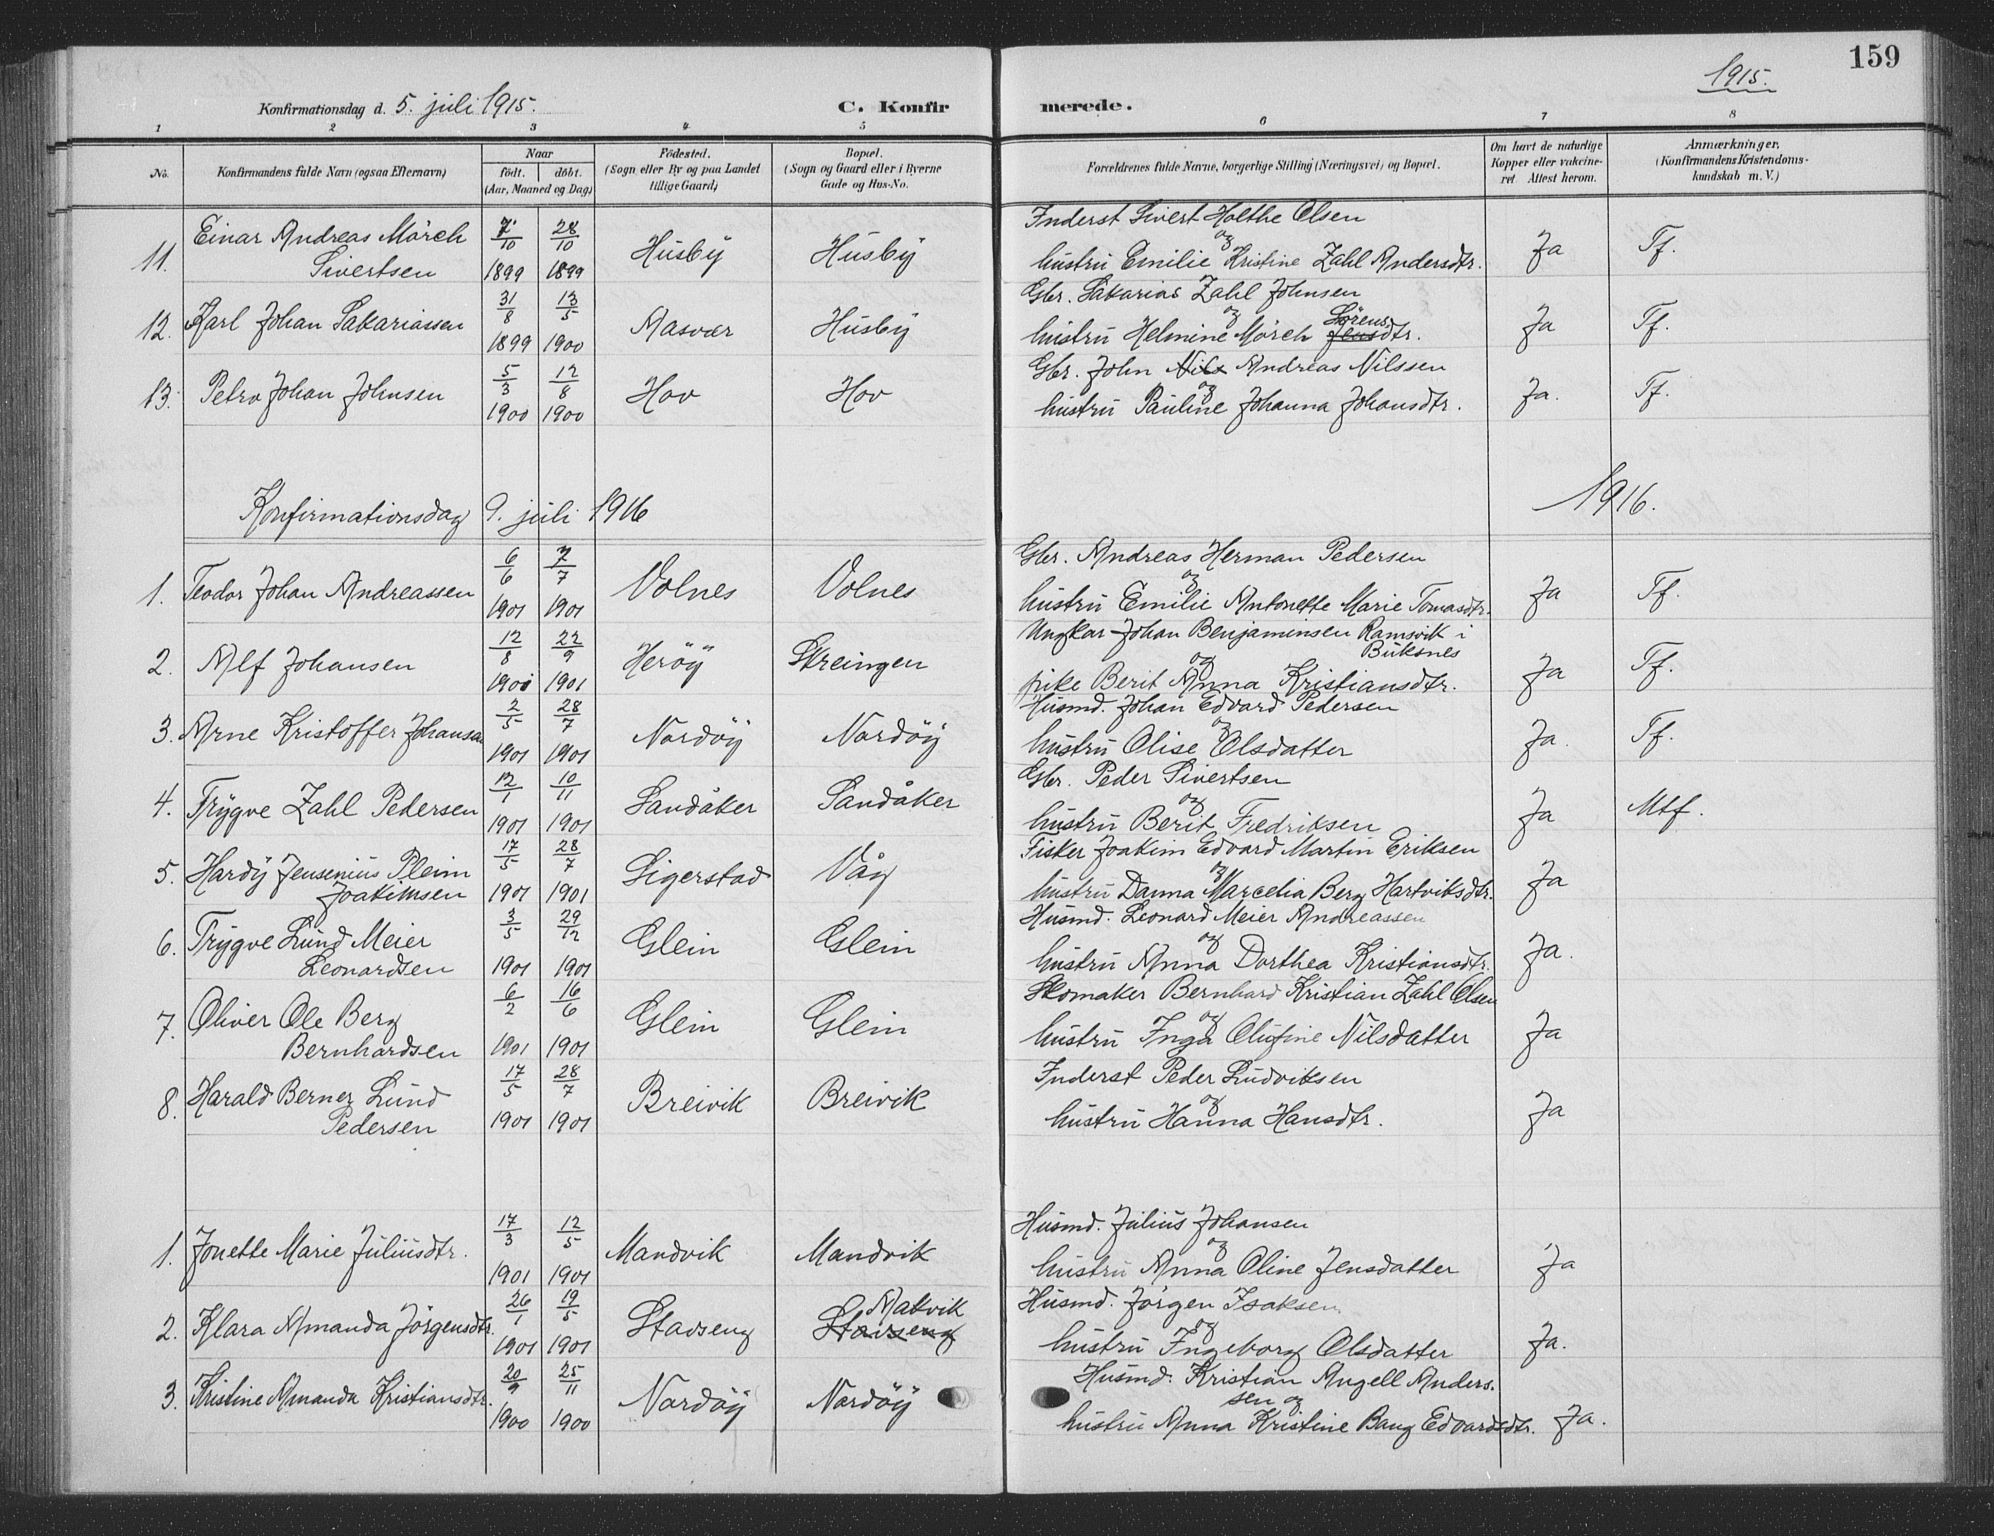 159
1915.
Konfirmationsdag d. 5. juli 1915.
C. Konfir
merede.
1 2 3 4 5 6 7 8
No.
Konfirmandens fulde Navn (ogsaa Efternavn)
Naar
født. døbt.
(Aar, Maaned og Dag)
Fødested.
(Sogn eller By og paa Landet
tillige Gaard)
Bopæl.
(Sogn og Gaard eller i Byerne
Gade og Hus-No.
Forældrenes fulde Navne, borgerlige Stilling (Næringsvei) og Bopæl.
Om havt de naturlige
Kopper eller vakcine-
ret Attest herom.
Anmærkninger.
(Konfirmandens Kristendoms-
kundskab m. V.)
11. Einar Andreas Mörch
Sivertsen
7/10 1899 28/10 1899 Husby Husby
Inderst Sivert Holthe Olsen
og
hustru Emilie Kristine Zahl Andersdtr. Ja Tf.
12. Karl Johan Sakariassen
31/8 1899 13/5 1900 Masvær Husby
Gbr. Sakarias Zahl Johnsen
og
hustru Helmine Mörch Jens Sörensdtr. Ja Tf.
13. Petro Johan Johnsen
5/3 1900 12/8 1900 Hov Hov
Gbr. John Nils Andreas Nilssen
og
hustru Pauline Johanna Johansdtr. Ja. Tf.
Konfirmationsdag 9. juli 1916
1916.
1. Teodor Johan Andreassen
6/6 1901 7/7 1901 Volnes Volnes
Gbr. Andreas Herman Pedersen
og
hustru Emilie Antonette Marie Tomasdtr. Ja Tf.
2. Alf Johansen
12/8 1900 22/9 1901 Heröy Skreingen
Ungkar Johan Benjaminsen Ramsvik i
Buksnes
og
pike Berit Anna Kristiansdtr. Ja Tf.
3. Arne Kristoffer Johansen
2/5 1901 28/7 1901 Nordöy Nordöy
Husmd. Johan Edvard Pedersen
og
hustru Olise Olsdatter Ja. Tf.
4. Trygve Zahl Pedersen
12/1 1901 10/11 1901 Sandåker Sandåker
Gbr. Peder Sivertsen
og
hustru Berit Fredriksen Ja Mtf.
5. Hardy Jensenius Pleim
Joakimsen
17/5 1901 28/7 1901 Sigerstad Våg
Fisker Joakim Edvard Martin Eriksen
og
hustru Danna Marcelia Berg Hartviksdtr. Ja
6. Trygve Lund Meier
Leonardsen
3/5 1901 29/12 1901 Glein Glein
Husmd. Leonard Meier Andreassen
og
hustru Anna Dorthea Kristiansdtr. Ja.
7. Oliver Ole Berg
Bernhardsen
6/2 1901 16/6 1901 Glein Glein
Skomaker Bernhard Kristian Zahl Olsen
og
hustru Inga Olufine Nilsdatter Ja
8. Harald Berner Lund
Pedersen
17/5 1901 28/7 1901 Breivik Breivik
Inderst Peder Ludviksen
og
hustru Hanna Hansdtr. Ja
1. Jonette Marie Juliusdtr.
17/3 1901 12/5 1901 Mandvik Mandvik
Husmd. Julius Johansen
og
hustru Anna Oline Jensdatter Ja
2. Klara Amanda Jörgensdtr.
26/1 1901 19/5 1901 Stavseng Makvik
Stavseng
Husmd. Jörgen Isaksen
og
hustru Ingeborg Olsdatter Ja.
3. Kristine Amanda Kristiansdtr.
20/9 1900 25/11 1900 Nordöy Nordöy
Husmd. Kristian Angell Anders-
sen og
hustru Anna Kristine Bang Edvardsdtr. Ja.